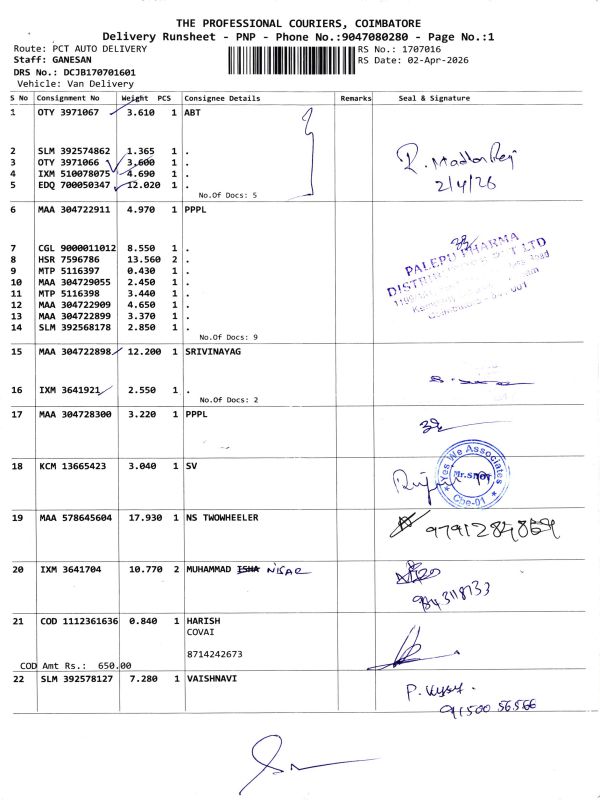 THE PROFESSIONAL COURIERS, COIMBATORE
Delivery Runsheet - PNP - Phone No.:9047080280 - Page No.:1
Route: PCT AUTO DELIVERY RS No.: 1707016
Staff: GANESAN RS Date: 02-Apr-2026
DRS No.: DCJB170701601
Vehicle: Van Delivery
S No Consignment No Weight PCS Consignee Details Remarks Seal & Signature
1 OTY 3971067 3.610 1 ABT
2 SLM 392574862 1.365 1 .
3 OTY 3971066 3.600 1 .
4 IXM 510078075 4.690 1 .
5 EDQ 700050347 12.020 1 .
2/4/26
No.Of Docs: 5
6 MAA 304722911 4.970 1 PPPL
7 CGL 9000011012 8.550 1 .
8 HSR 7596786 13.560 2 .
9 MTP 5116397 0.430 1 .
10 MAA 304729055 2.450 1 .
11 MTP 5116398 3.440 1 .
12 MAA 304722909 4.650 1 .
13 MAA 304722899 3.370 1 .
14 SLM 392568178 2.850 1 .
PALEPU PHARMA
No.Of Docs: 9
15 MAA 304722898 12.200 1 SRIVINAYAG
16 IXM 3641921 2.550 1 .
No.Of Docs: 2
17 MAA 304728300 3.220 1 PPPL
18 KCM 13665423 3.040 1 SV
Yes We Associates
Cbe-01
19 MAA 578645604 17.930 1 NS TWOWHEELER
20 IXM 3641704 10.770 2 MUHAMMAD ISHA NISAR
9843118733
21 COD 1112361636 0.840 1 HARISH
COVAI
8714242673
COD Amt Rs.: 650.00
22 SLM 392578127 7.280 1 VAISHNAVI
91500 56566